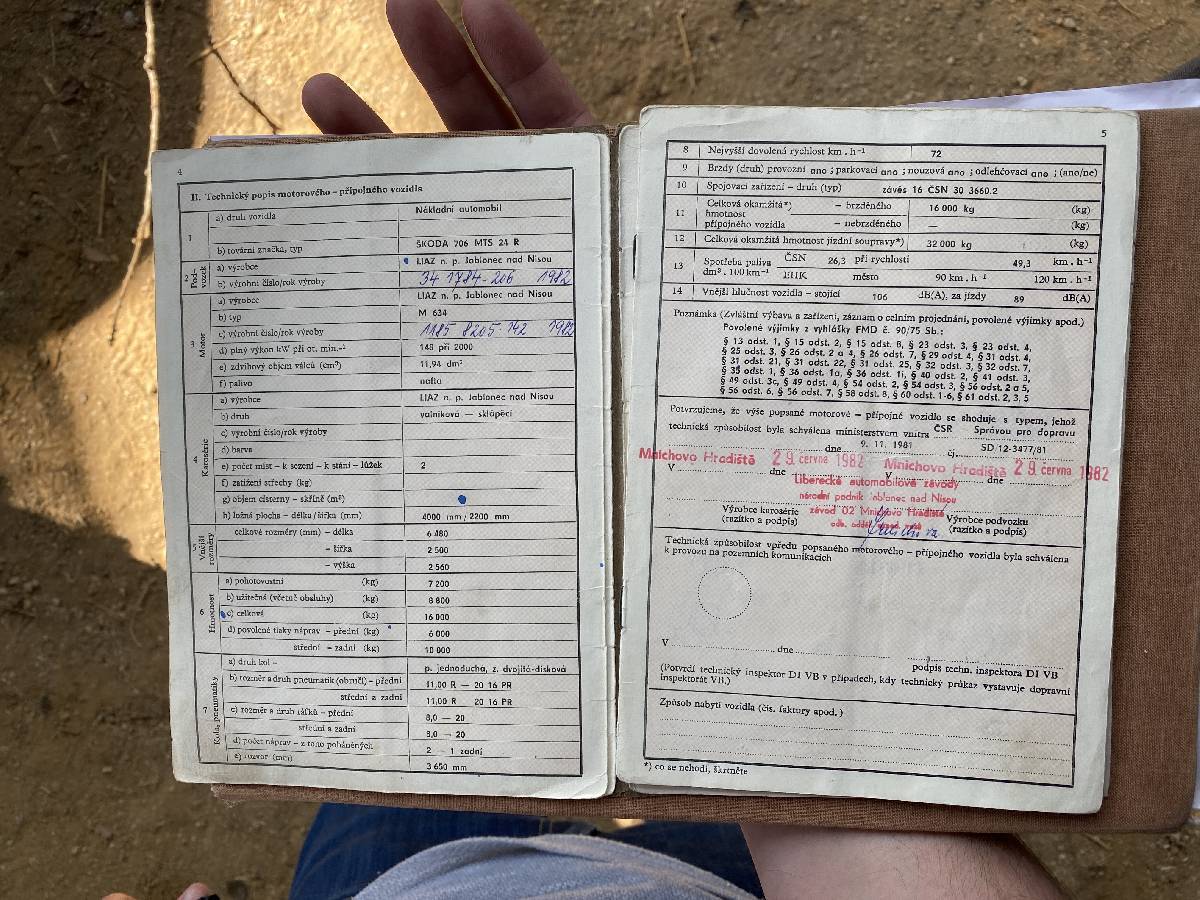 4
II. Technický popis motorového – přípojného vozidla
1
a) druh vozidla Nákladní automobil
b) tovární značka, typ ŠKODA 706 MTS 24 R
2 Pod-vozek
a) výrobce LIAZ n. p. Jablonec nad Nisou
b) výrobní číslo/rok výroby 34 1784-206 1982
3 Motor
a) výrobce LIAZ n. p. Jablonec nad Nisou
b) typ M 634
c) výrobní číslo/rok výroby 1185 8205 142 1982
d) plný výkon kW při ot. min.⁻¹ 148 při 2000
e) zdvihový objem válců (cm³) 11,94 dm³
f) palivo nafta
4 Karosérie
a) výrobce LIAZ n. p. Jablonec nad Nisou
b) druh valníková — sklápěcí
c) výrobní číslo/rok výroby
d) barva
e) počet míst – k sezení – k stání – lůžek 2
f) zatížení střechy (kg)
g) objem cisterny – skříně (m³)
h) ložná plocha – délka/šířka (mm) 4000 mm/2200 mm
5 Vnější rozměry
celkové rozměry (mm) – délka 6 480
– šířka 2 500
– výška 2 560
6 Hmotnost
a) pohotovostní (kg) 7 200
b) užitečná (včetně obsluhy) (kg) 8 800
c) celková (kg) 16 000
d) povolené tlaky náprav – přední (kg) 6 000
střední – zadní (kg) 10 000
7 Kola, pneumatiky
a) druh kol – p. jednoduchá, z. dvojitá-disková
b) rozměr a druh pneumatik (obručí) – přední 11,00 R — 20 16 PR
střední a zadní 11,00 R — 20 16 PR
c) rozměr a druh ráfků – přední 8,0 — 20
střední a zadní 8,0 — 20
d) počet náprav – z toho poháněných 2 — 1 zadní
e) rozvor (mm) 3 650 mm
5
8 Nejvyšší dovolená rychlost km . h⁻¹ 72
9 Brzdy (druh) provozní ano ; parkovací ano ; nouzová ano ; odlehčovací ano ; (ano/ne)
10 Spojovací zařízení – druh (typ) závěs 16 ČSN 30 3660.2
11 Celková okamžitá*) – brzděného 16 000 kg (kg)
hmotnost
přípojného vozidla – nebrzděného — (kg)
12 Celková okamžitá hmotnost jízdní soupravy*) 32 000 kg (kg)
13 Spotřeba paliva ČSN 26,3 při rychlosti 49,3 km . h⁻¹
dm³ . 100 km⁻¹ EHK město 90 km . h⁻¹ 120 km . h⁻¹
14 Vnější hlučnost vozidla – stojící 106 dB(A), za jízdy 89 dB(A)
Poznámka (Zvláštní výbava a zařízení, záznam o celním projednání, povolené výjimky apod.)
Povolené výjimky z vyhlášky FMD č. 90/75 Sb.:
§ 13 odst. 1, § 15 odst. 2, § 15 odst. 8, § 23 odst. 3, § 23 odst. 4,
§ 25 odst. 3, § 26 odst. 2 a 4, § 26 odst. 7, § 29 odst. 4, § 31 odst. 4,
§ 31 odst. 21, § 31 odst. 22, § 31 odst. 25, § 32 odst. 3, § 32 odst. 7,
§ 35 odst. 1, § 36 odst. 1a, § 36 odst. 1i, § 40 odst. 2, § 41 odst. 3,
§ 49 odst. 3c, § 49 odst. 4, § 54 odst. 2, § 54 odst. 3, § 56 odst. 2 a 5,
§ 56 odst. 6, § 56 odst. 7, § 58 odst. 8, § 60 odst. 1-6, § 61 odst. 2, 3, 5
Potvrzujeme, že výše popsané motorové – přípojné vozidlo se shoduje s typem, jehož
technická způsobilost byla schválena ministerstvem vnitra ČSR Správou pro dopravu
dne 9. 11. 1981 čj. SD 12-3477/81
Mnichovo Hradiště 29. června 1982 Mnichovo Hradiště 29. června 1982
V dne V dne
Liberecké automobilové závody
národní podnik Jablonec nad Nisou
závod 02 Mnichovo Hradiště
Výrobce karosérie Výrobce podvozku
(razítko a podpis) (razítko a podpis)
Technická způsobilost vpředu popsaného motorového – přípojného vozidla byla schválena
k provozu na pozemních komunikacích
V dne
podpis techn. inspektora DI VB
(Potvrdí technický inspektor DI VB v případech, kdy technický průkaz vystavuje dopravní
inspektorát VB.)
Způsob nabytí vozidla (čís. faktury apod.)
*) co se nehodí, škrtněte